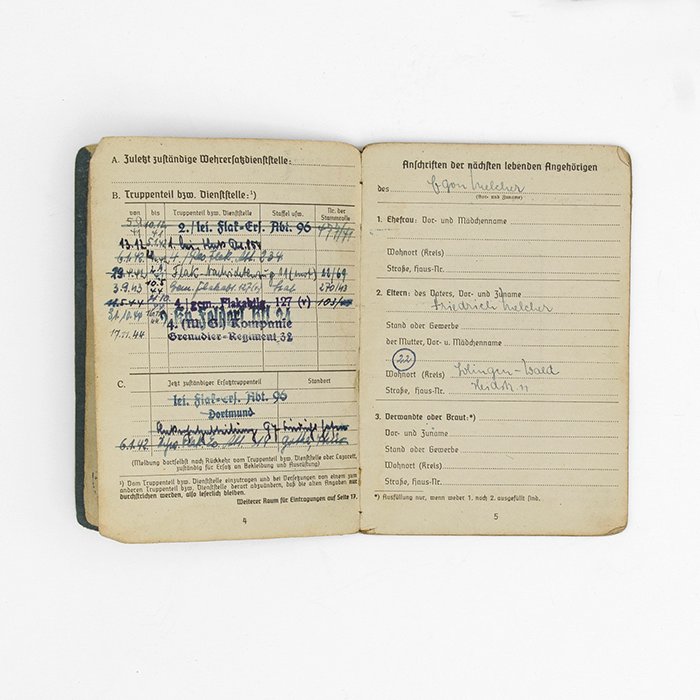 A. Zuletzt zuständige Wehrersatzdienststelle:
B. Truppenteil bzw. Dienststelle:¹)
von bis Truppenteil bzw. Dienststelle Staffel usw. Nr. der Stammrolle
2./lei. Flak-Ers. Abt. 96
13.12.
6.1.42 Flak. Abt. 234
Flak 22/69
3.9.43 270/43
4./gem. Flakabtlg. 127 (v) 103/
31.10.44
4. (M.G.) Kompanie
17.11.44 Grenadier-Regiment 32
C. Jetzt zuständiger Ersatztruppenteil Standort
lei. Flak-Ers. Abt. 96
Dortmund
6.1.42
(Meldung dortselbst nach Rückkehr vom Truppenteil bzw. Dienststelle oder Lazarett,
zuständig für Ersatz an Bekleidung und Ausrüstung)
¹) Vom Truppenteil bzw. Dienststelle einzutragen und bei Versetzungen von einem zum
anderen Truppenteil bzw. Dienststelle derart abzuändern, daß die alten Angaben nur
durchstrichen werden, also leserlich bleiben.
Weiterer Raum für Eintragungen auf Seite 17.
4
Anschriften der nächsten lebenden Angehörigen
des Egon Melcher
(Vor- und Zuname)
1. Ehefrau: Vor- und Mädchenname
Wohnort (Kreis)
Straße, Haus-Nr.
2. Eltern: des Vaters, Vor- und Zuname
Friedrich Melcher
Stand oder Gewerbe
der Mutter, Vor- u. Mädchenname
22
Wohnort (Kreis) Solingen-Wald
Straße, Haus-Nr.
3. Verwandte oder Braut:*)
Vor- und Zuname
Stand oder Gewerbe
Wohnort (Kreis)
Straße, Haus-Nr.
*) Ausfüllung nur, wenn weder 1. noch 2. ausgefüllt sind.
5